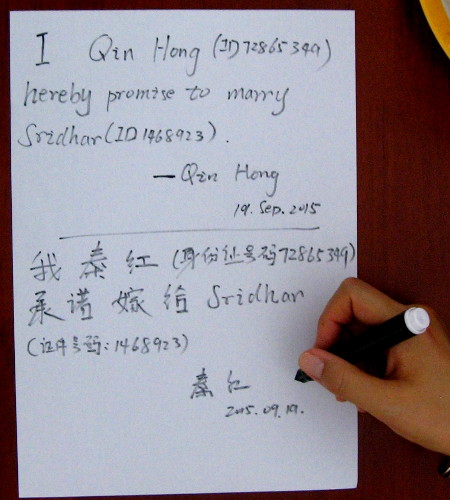 I Qin Hong (ID72865349)
hereby promise to marry
Sridhar(ID1468923).
—Qin Hong
19. Sep. 2015
我 秦 红 (身份证号码72865349)
承诺 嫁给 Sridhar
(证件号码:1468923)
秦 红
2015.09.19.